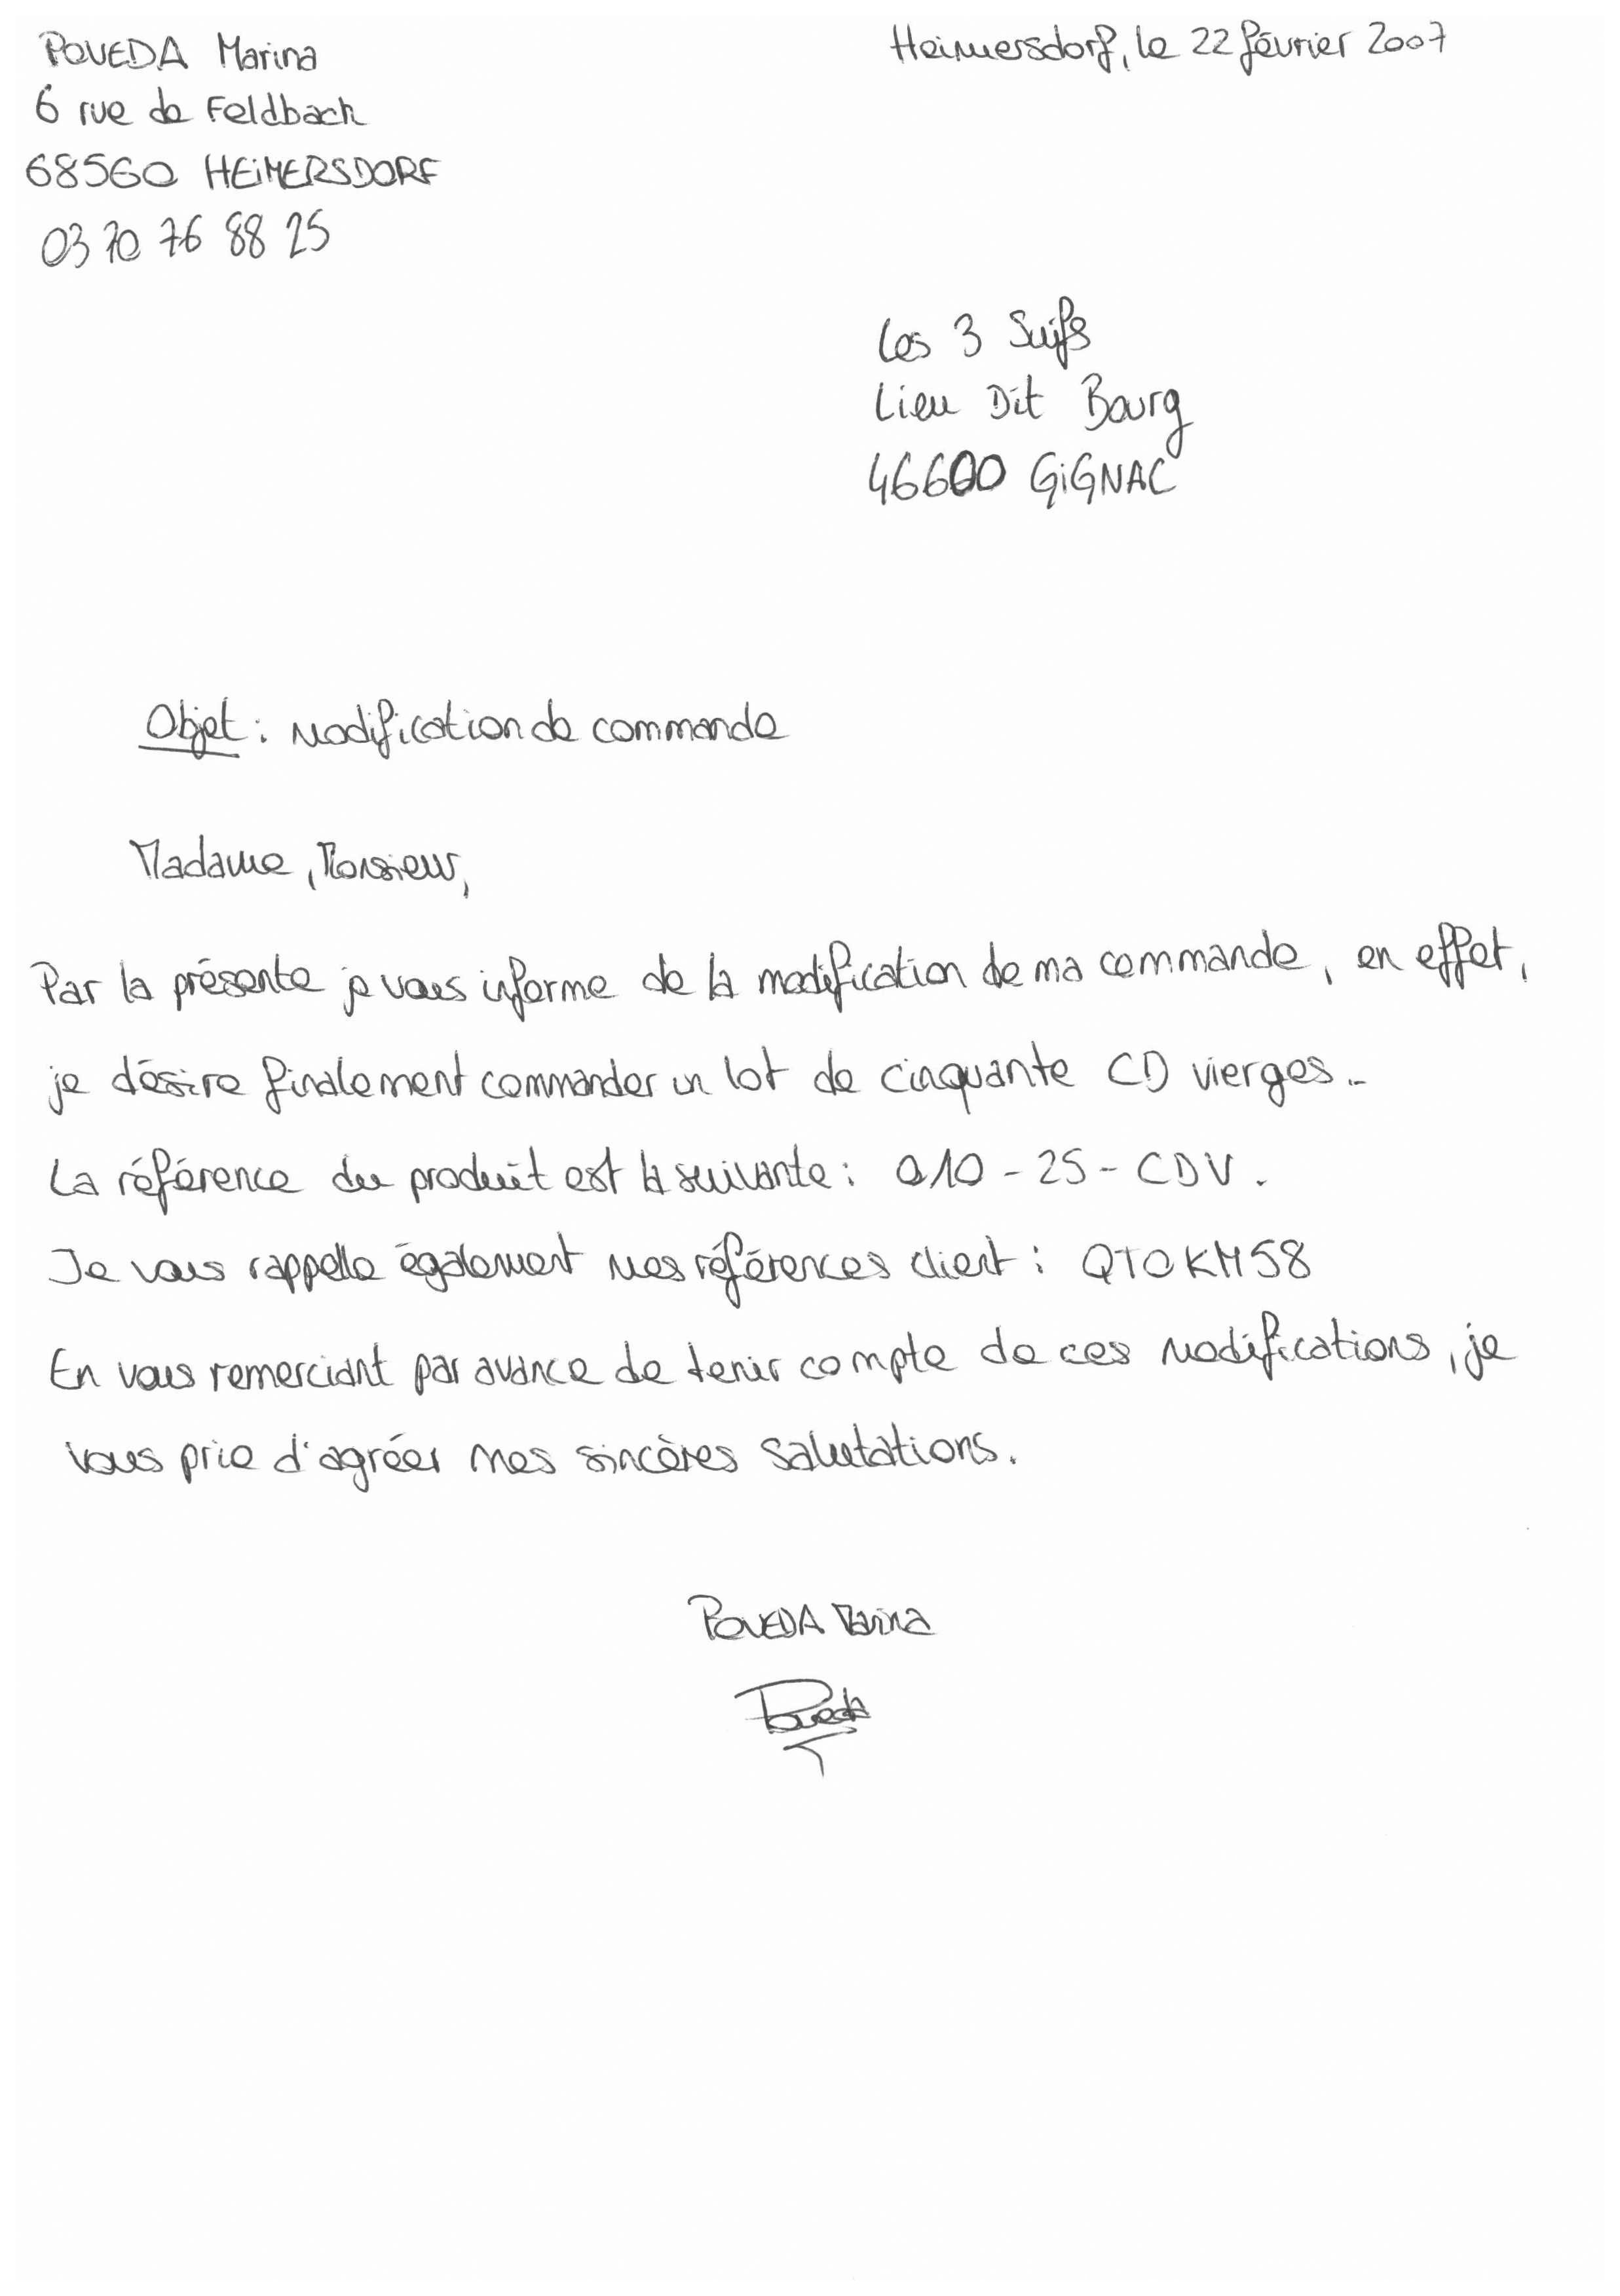 POVEDA Marina
6 rue de Feldbach
68560 HEIMERSDORF
03 70 76 88 25
Heimersdorf, le 22 février 2007
Les 3 Suifs
Lieu Dit Bourg
46600 GIGNAC
Objet : Modification de commande
Madame, Monsieur,
Par la présente je vous informe de la modification de ma commande, en effet,
je désire finalement commander un lot de cinquante CD vierges.
La référence du produit est la suivante : a10-25-CDV.
Je vous rappelle également mes références client : QTOKM58
En vous remerciant par avance de tenir compte de ces modifications, je
vous prie d'agréer mes sincères salutations.
POVEDA Marina
Poveda